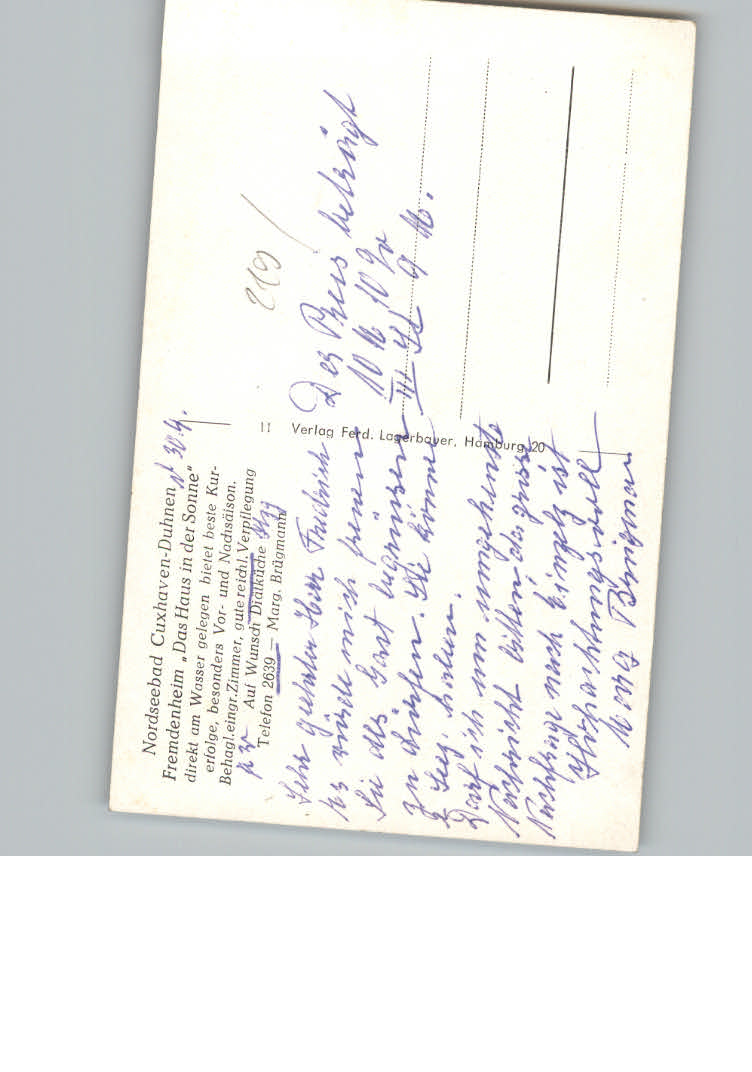 Nordseebad Cuxhaven-Duhnen
Fremdenheim „Das Haus in der Sonne"
direkt am Wasser gelegen bietet beste Kur-
erfolge, besonders Vor- und Nachsäison.
Behagl. eingr. Zimmer, gute reichl. Verpflegung
Auf Wunsch Diätküche
Telefon 2639 — Marg. Brügmann
30.4.
Sehr geehrter Herr Friedrich
es würde mich freuen
Sie als Gast begrüssen
zu dürfen. Sie könne
haben.
Darf ich um umgehende
Nachricht bitten da grosse
Nachfrage nach Einzelz ist
Hochachtungsvoll
Marg Brügman
11 Verlag Ferd. Lagerbauer, Hamburg 20
219
Der Preis beträgt
10
9 M.